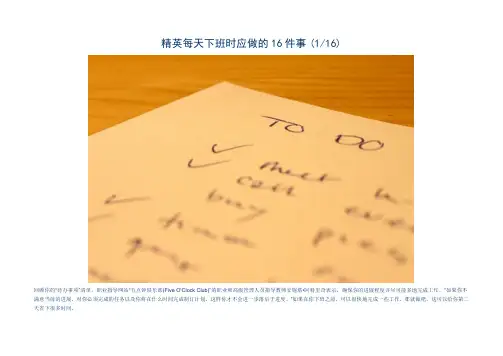 精英每天下班时应做的16件事 (1/16)
TO DO
meet
call
buy
回顾你的"待办事项"清单。职业指导网站"五点钟俱乐部(Five O'Clock Club)"的职业和高级管理人员指导教师
表示,确保你的进展程度并尽可能多地完成工作。"如果你不
满意当前的进展,对你必须完成的任务以及你将在什么时间完成制订计划。这样你才不会进一步落后于进度。"如果在你下班之前,可以很快地完成一些工作,那就做吧。这可以给你第二
天省下很多时间。